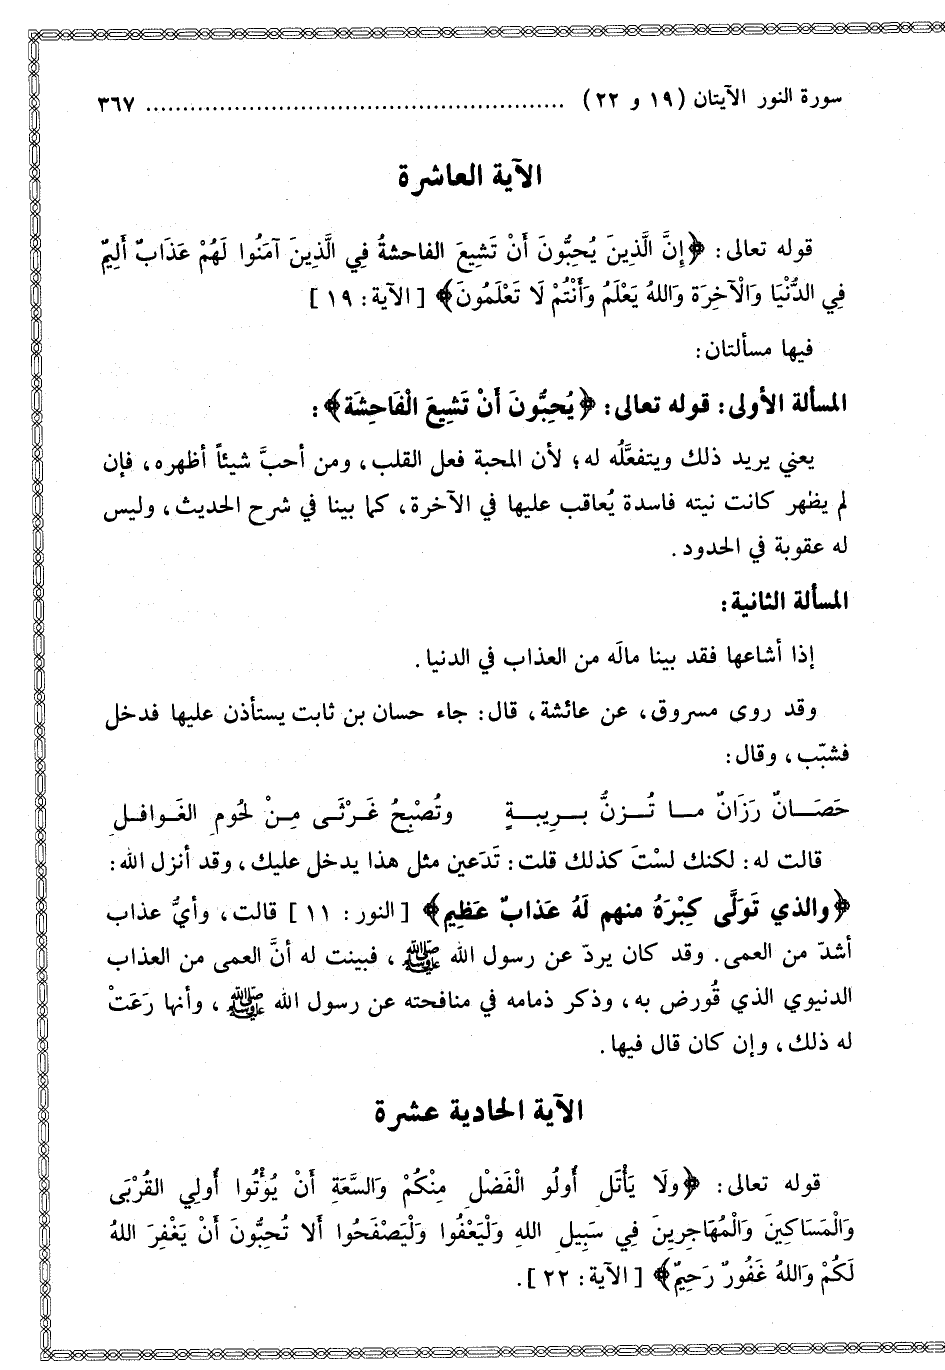 سورة النور الآيتان (١٩ و ٢٢) ............................................................ ٣٦٧
الآية العاشرة
قوله تعالى: ﴿إِنَّ الَّذِينَ يُحِبُّونَ أَنْ تَشِيعَ الفاحشةُ فِي الَّذِينَ آمَنُوا لَهُمْ عَذَابٌ أَلِيمٌ
فِي الدُّنْيَا وَالْآخِرَة وَاللهُ يَعْلَمُ وَأَنْتُمْ لَا تَعْلَمُونَ﴾ [الآية: ١٩]
فيها مسألتان:
المسألة الأولى: قوله تعالى: ﴿يُحِبُّونَ أَنْ تَشِيعَ الْفَاحِشَة﴾:
يعني يريد ذلك ويتفعَّلُه له؛ لأن المحبة فعل القلب، ومن أحبَّ شيئاً أظهره، فإن
لم يظهر كانت نيته فاسدة يُعاقب عليها في الآخرة، كما بينا في شرح الحديث، وليس
له عقوبة في الحدود.
المسألة الثانية:
إذا أشاعها فقد بينا مالَه من العذاب في الدنيا.
وقد روى مسروق، عن عائشة، قال: جاء حسان بن ثابت يستأذن عليها فدخل
فشبّب، وقال:
حَصَـــانٌ رَزَانٌ مـــا تُـــزنُّ بـــرِيبـــةٍ وتُصْبِحُ غَـرْثَـى مِـنْ لحُومِ الغَـوافلِ
قالت له: لكنك لسْتَ كذلك قلت: تَدَعين مثل هذا يدخل عليك، وقد أنزل الله:
﴿والذي تَوَلَّى كِبْرَهُ منهم لَهُ عَذابٌ عَظِيم﴾ [النور: ١١] قالت، وأيُّ عذاب
أشدّ من العمى. وقد كان يردّ عن رسول الله ﷺ، فبينت له أنَّ العمى من العذاب
الدنيوي الذي قُورض به، وذكر ذمامه في منافحته عن رسول الله ﷺ، وأنها رَعَتْ
له ذلك، وإن كان قال فيها.
الآية الحادية عشرة
قوله تعالى: ﴿ولَا يَأْتَلِ أُولُو الْفَضْلِ مِنْكُمْ وَالسَّعَةِ أَنْ يُؤْتُوا أُولِي القُرْبَى
وَالْمَسَاكِينَ وَالْمُهَاجِرِينَ فِي سَبِيلِ اللهِ وَلْيَعْفُوا وَلْيَصْفَحُوا أَلا تُحِبُّونَ أَنْ يَغْفِرَ اللهُ
لَكُمْ وَاللهُ غَفُورٌ رَحِيمٌ﴾ [الآية: ٢٢].